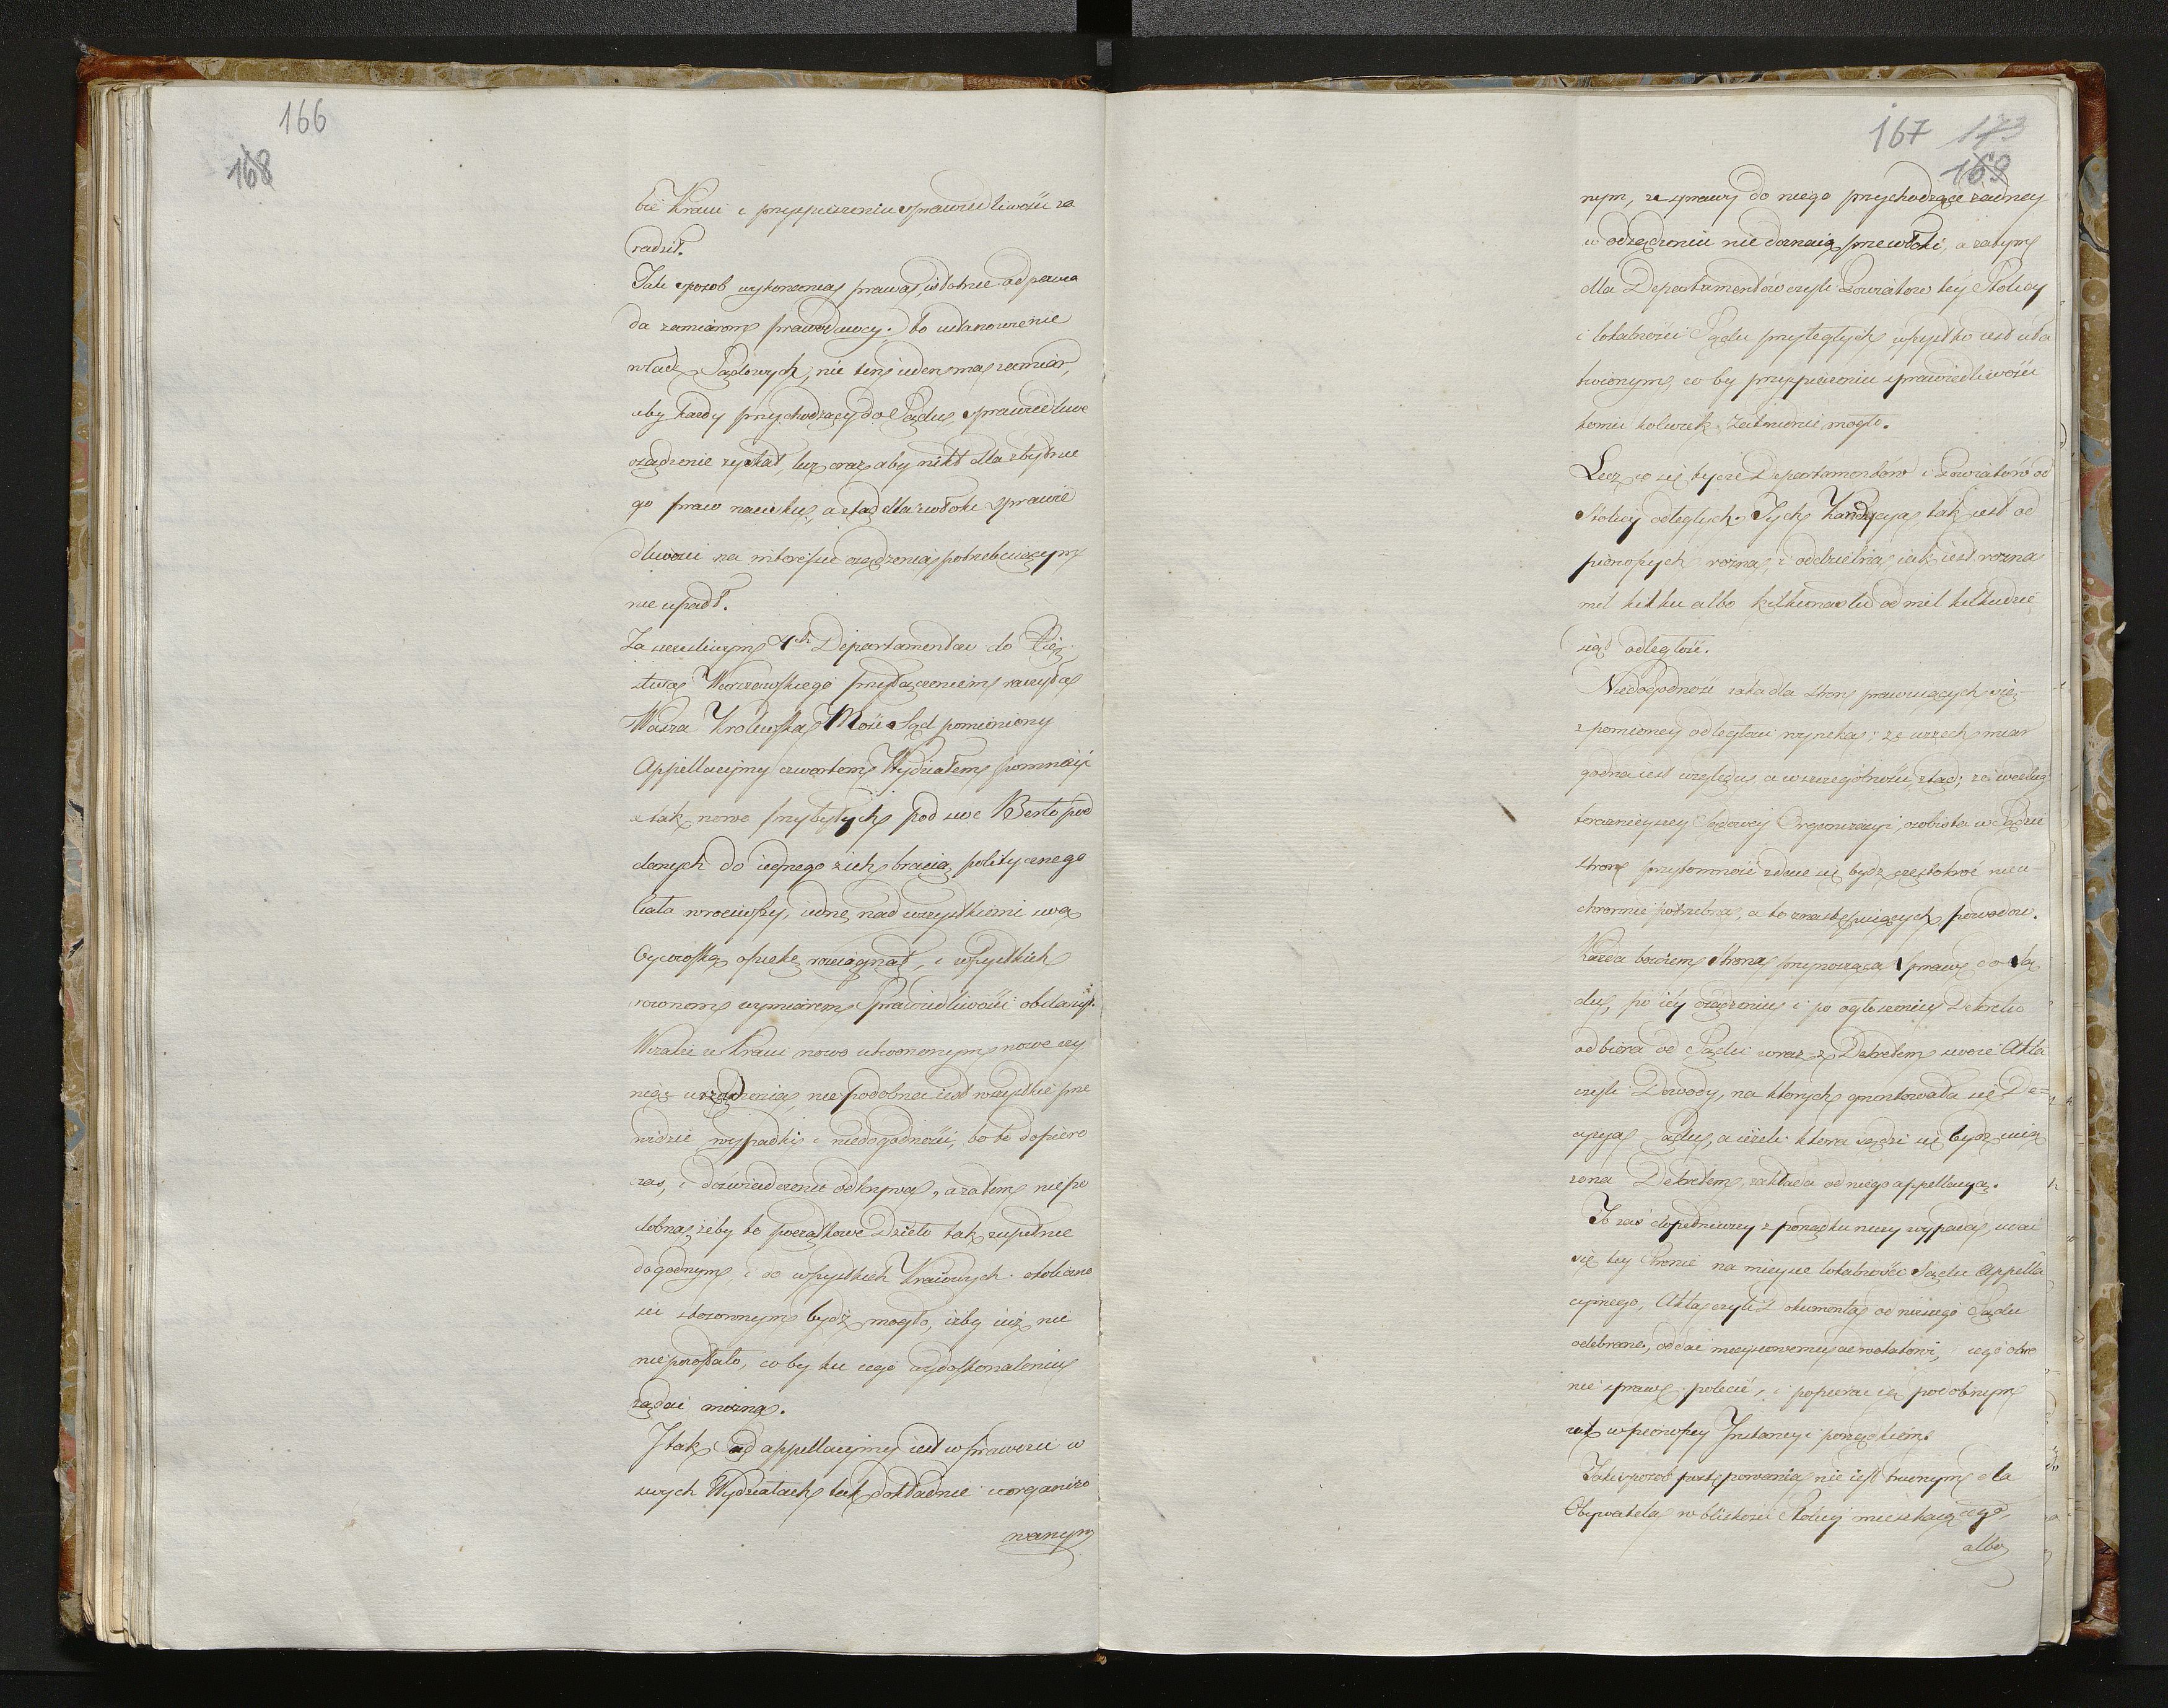 166
168
bie Kraiu i przyspieszeniu sprawiedliwości za
radził.
Taki sposob wykonania prawa, istotnie odpowia
da zamiarom prawodawcy. bo ustanowienie
władz Sądowych, nie ten ieden ma zamiar,
aby każdy przychodzący do Sądu, sprawiedliwe
osądzenie zyskał, lecz oraz aby nikt dla zbytnie
go praw nacisku, a ztąd dla zwłoki sprawie
dliwości na interessie osądzenia potrzebuiącym
nie upadł.
Za szczęśliwym 4ch Departamentow do Xię
stwa Warszawskiego przyłączeniem raczyła
Wasza Krolewska Mość Sąd pomieniony
Appellacyiny czwartym Wydziałem pomnożyć
a tak nowo przybyłych pod swe Berło pod
danych do iednego z ich bracią politycznego
Ciała wrociwszy, iedną nad wszystkiemi swą
Oycowską opiekę rozciągnąć, i wszystkich
rownem wymiarem Sprawiedliwości obdarzyć.
Wszakże w Kraiu nowo utworzonym nowe czy
niąc urządzenia, nie podobna iest wszystkie prze
widzieć wypadki i niedogodności, bo te dopiero
czas, i doświadczenie odkrywa, a zatem niepo
dobna, żeby to początkowe Dzieło tak zupełnie
dogodnym, i do wszystkich Kraiowych okoliczno
ści stosownym bydź mogło, iżby iuż nic
nie pozostało, co by ku iego wydoskonaleniu
żądać można.
I tak Sąd appellacyiny iest w prawdzie w
swych Wydziałach tak dokładnie uorganizo
wanym
167 173
169
nym, że sprawy do niego przychodzące żadney
w odsądzeniu nie doznaią przewłoki, a zatym
dla Departamentów czyli Powiatow tey Stolicy
i lokalności Sądu przyległych wszystko iest uła
twionym, co by przyspieszeniu sprawiedliwości
komu kolwiek zatrudnić mogło.
Lecz co się tycze Departamentów i Powiatów od
Stolicy odległych. Tych Kondycya tak iest od
pierwszych rożna, i oddzielna, iak iest rożna
mil kilku albo kilkunastu od mil kilkudzie
siąt odległość.
Niedogodność taka dla stron prawuiących się
z pomienioney odległości wynika; ze wszech miar
godna iest względu, a w szczególności ztąd; że według
teraznieyszey Sądowey Organizacyi, osobista w Sądzie
strony przytomność zdaie się bydź częstokroć nieu
chronnie potrzebna, a to z następuiących powodow.
Każda bowiem strona przynosząca Sprawę do Są
du, po iey osądzeniu i po ogłoszeniu Dekretu
odbiera od Sądu wraz z Dekretem swoie Akta
czyli Dowody, na ktorych gruntowała się De=
cyzya Sądu, a ieżeli ktora sądzi się bydź ucią
żona Dekretem, zakłada od niego appellacyą.
To zaś dopełniwszy z porządku rzeczy wypada, udać
się tey stronie na mieysce lokalności Sądu Appella
cyinego, Akta czyli Dokumenta od niższego Sądu
odebrane, oddać mieyscowemu adwokatowi, iego obro
nie sprawę polecić, i popierać ią podobnym
iak w pierwszey Instancyi porządkiem.
Taki sposob postępowania nie iest trudnym dla
Obywatela w bliskości Stolicy mieszkaiącego,
albo